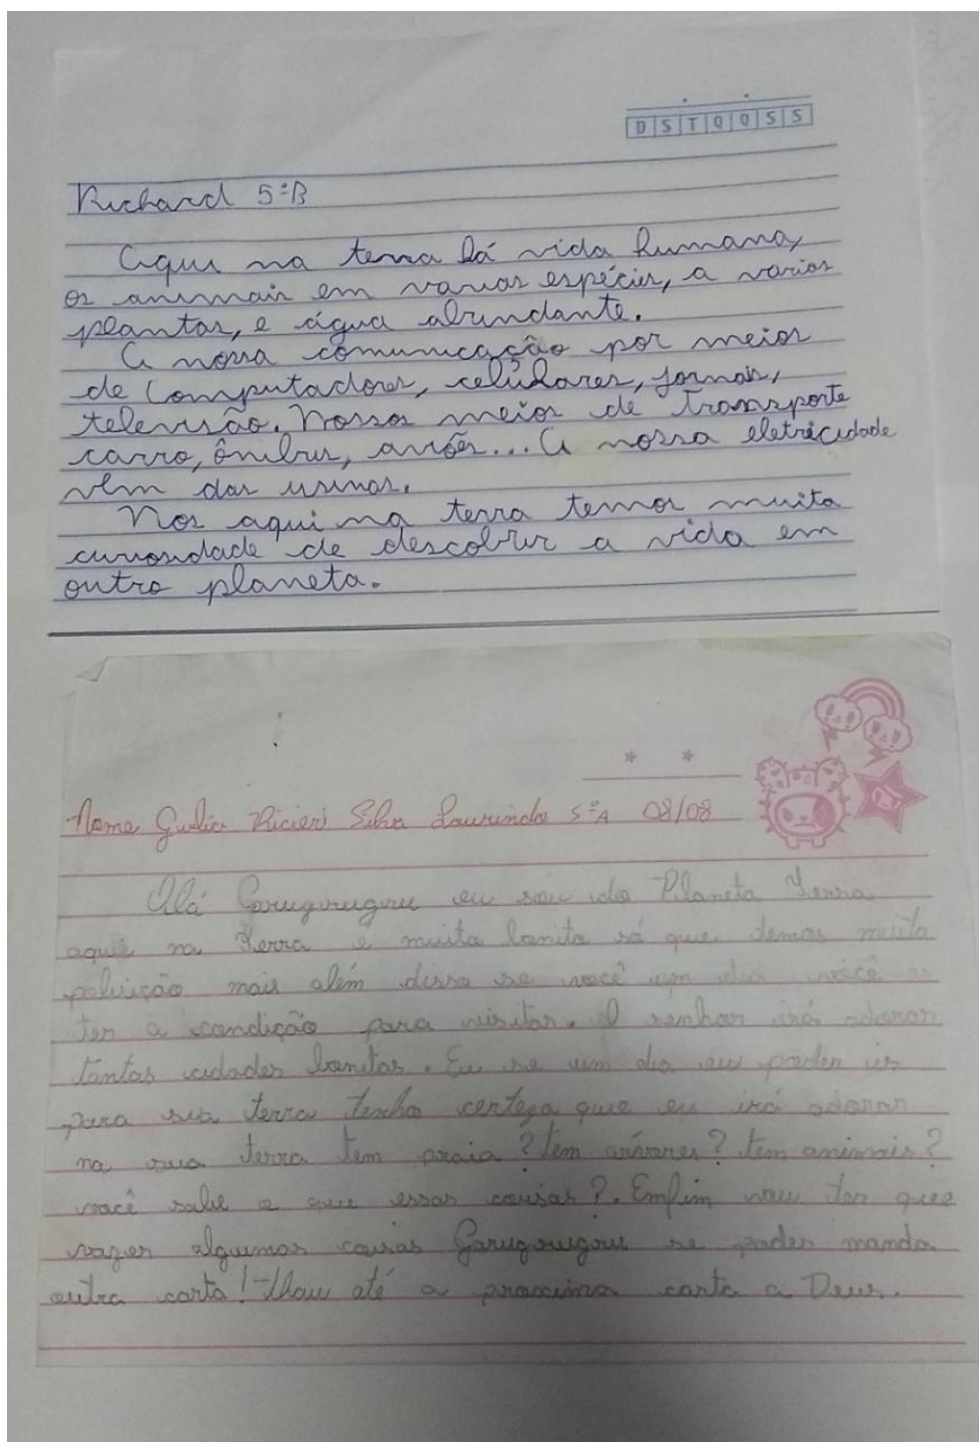 D S T Q Q S S
Richard 5ºB
Aqui na terra há vida humana,
os animais em varias espécies, a varias
plantas, e água abundante.
A nossa comunicação por meios
de Computadores, celulares, jornais,
televisão. Nossos meios de transporte
carro, ônibus, aviões... A nossa eletricidade
vêm das usinas.
Nos aqui na terra temos muita
curiosidade de descobrir a vida em
outro planeta.
Nome Giulia Ricieri Silva Laurindo 5ºA 08/08
Olá Garugurugru eu sou do Planeta Terra
aqui na Terra é muita bonita só que temos muita
poluição mais além disso se você um dia você
ter a condição para visitar. O senhor irá adorar
tantas cidades bonitas. Eu se um dia eu poder ir
para sua terra tenho certeza que eu irá adorar
na sua terra tem praia? tem arvores? tem animais?
você sabe o que essas coisas?. Emfim vou ter que
vazer algumas coisas se poder manda
outra carta! Thau até a proxima carta a Deus.